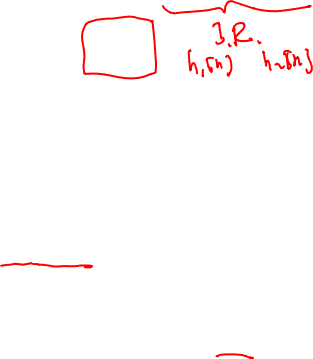 I.R.
h₁[n] h₂[n]